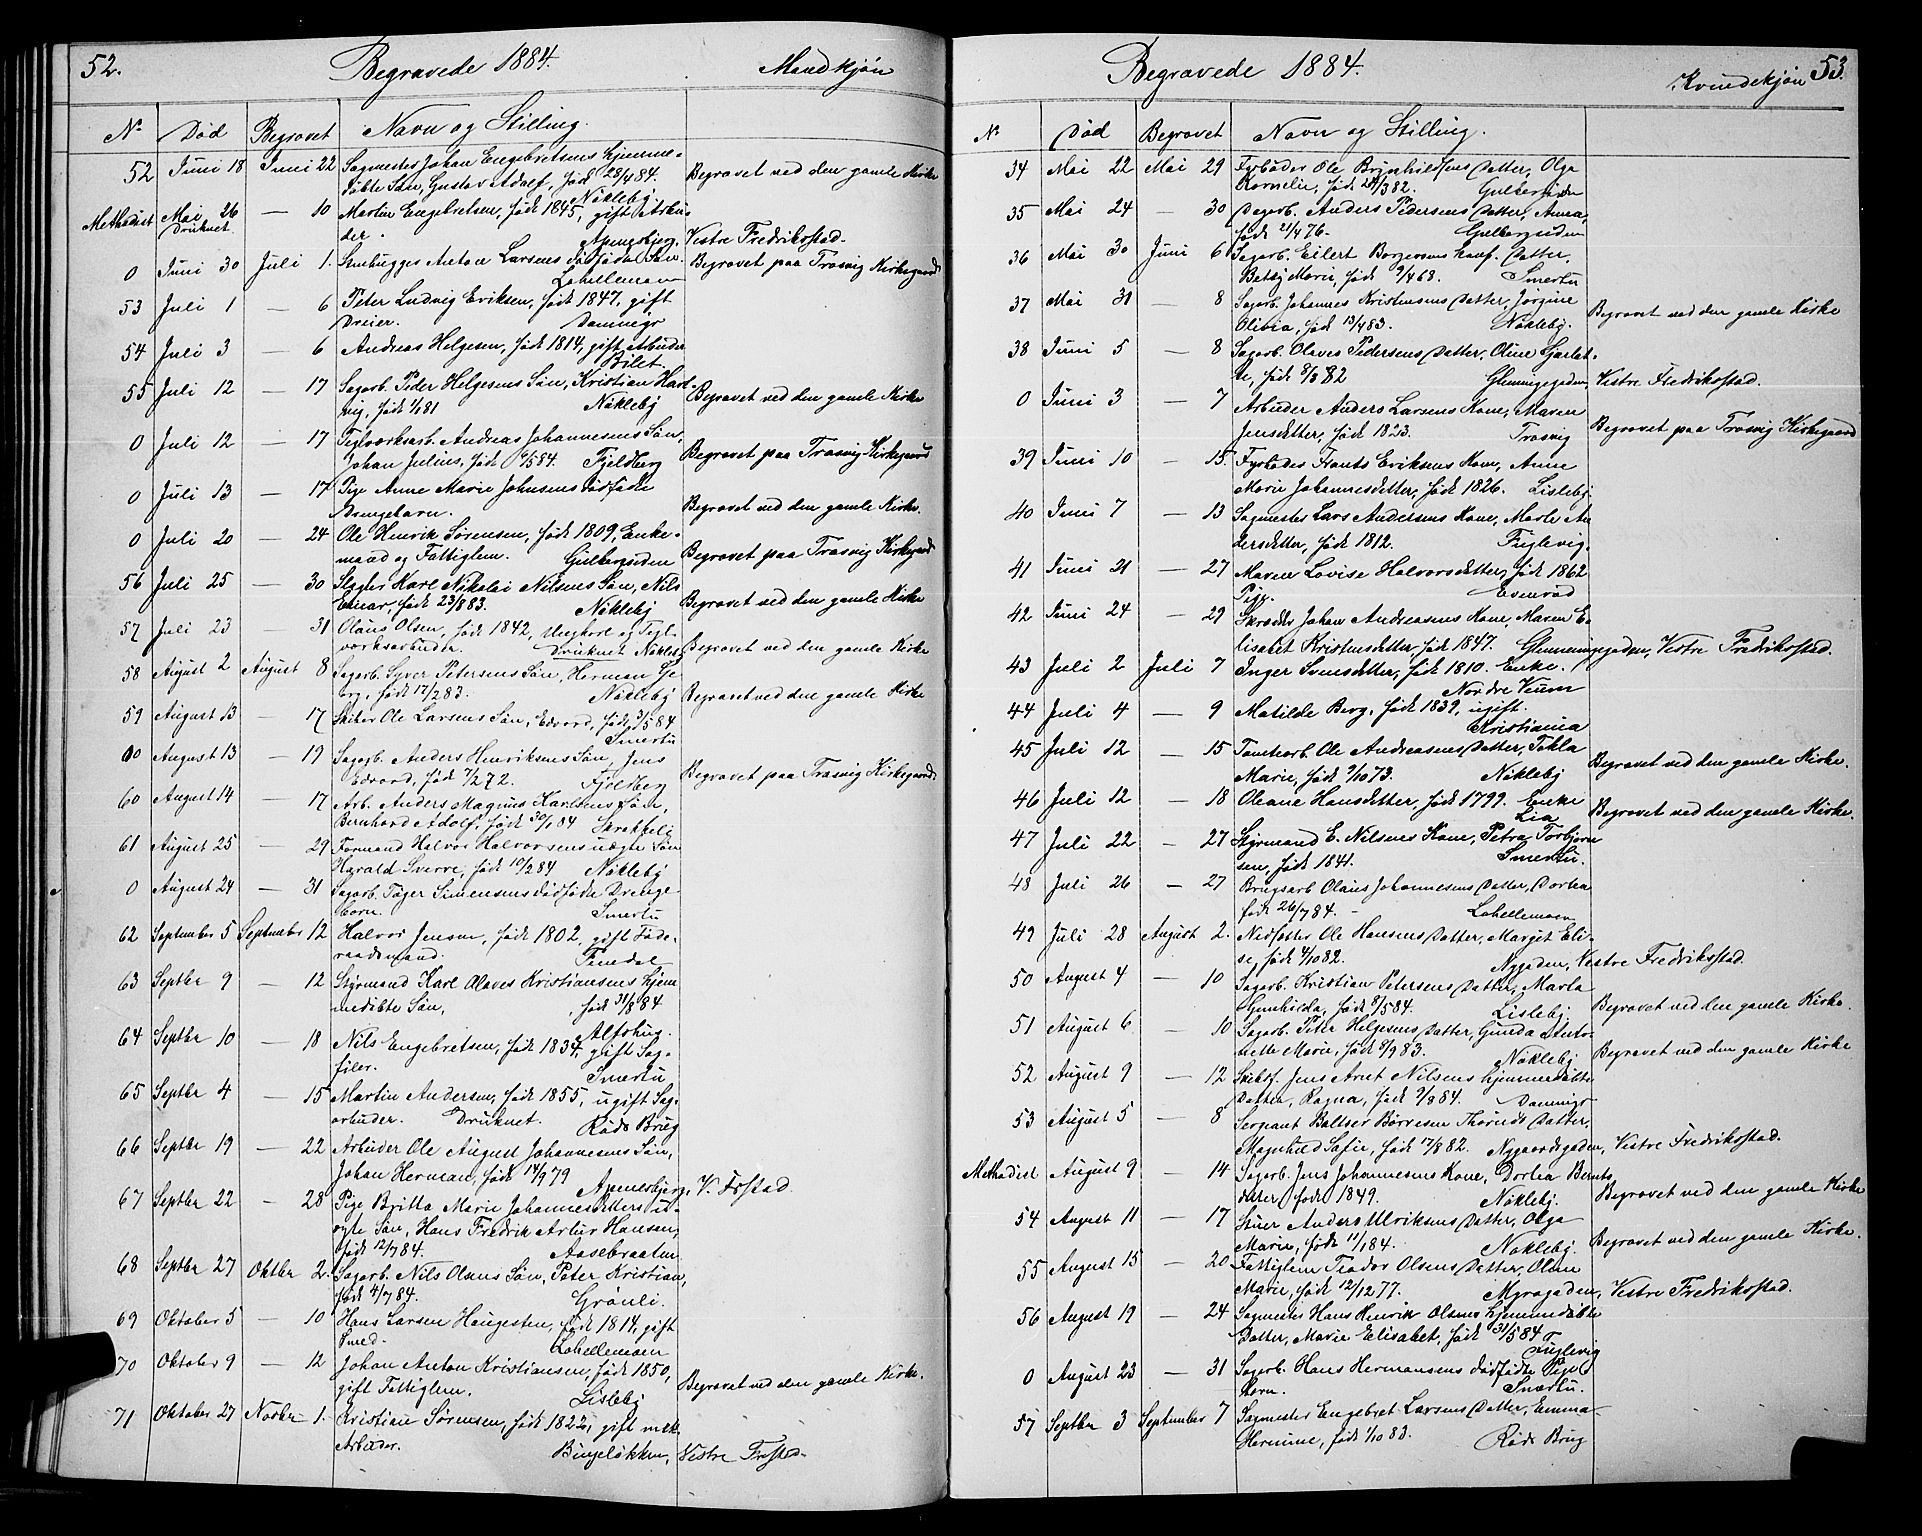 52.
Begravede 1884.
Mandkjøn
No
Død
Begravet
Navn og Stilling.
52 Juni 18 Juni 22 Sagmester Johan Engebretsens hjemme-
døbte Søn, Gustav Adolf, født 28/4 84. Begravet ved den gamle Kirke
Nökleby.
Methodist Mai 26 — 10 Martin Engebretsen, født 1845, gift Arbei-
Druknet
der. Apenesbjerg, Vestre Fredrikstad.
0 Juni 30 Juli 1. Stenhugger Anton Larsens dødfødte Søn. Begravet paa Trosvig Kirkegaard
Lahellemoen
53 Juli 1 — 6 Peter Ludvig Eriksen, født 1847, gift
Dreier. Damnegr
54 Juli 3 — 6 Andreas Helgesen, født 1814, gift Arbeider
Bilet
55 Juli 12 — 17 Sagarb. Peder Helgesens Søn, Kristian Hart-
vig, født 1/1 81 Nökleby Begravet ved den gamle Kirke
0 Juli 12 — 17 Teglværksarb. Andreas Johannesens Søn,
Johan Julius, født 6/5 84. Fjeldberg Begravet paa Trosvig Kirkegaard
0 Juli 13 — 17 Pige Anne Marie Johnsens dødfødte
Drengebarn. Begravet ved den gamle Kirke.
0 Juli 20 — 24 Ole Henrik Sørensen, født 1809, Enke-
mand og Fattiglem. Gulbergsiden Begravet paa Trosvig Kirkegaard
56 Juli 25 — 30 Slagter Karl Nikolai Nilsens Søn, Nils
Einar, født 23/8 83. Nökleby Begravet ved den gamle Kirke
57 Juli 23 — 31 Olaus Olsen, født 1842, Ungkarl og Tegl-
værksarbeider. Druknet Nökleby Begravet ved den gamle Kirke
58 August 2 August 8 Sagarb. Syver Petersens Søn, Herman Ge-
org, født 17/2 83. Nökleby Begravet ved den gamle Kirke
59 August 13 — 17 Skiber Ole Larsens Søn, Edvard, født 3/5 84
Smertu
60 August 13 — 19 Sagarb. Anders Henriksens Søn, Jens
Edvard, født 7/2 72. Fjeldberg Begravet paa Trosvig Kirkegaard.
60 August 14 — 17 Arb. Anders Magnus Karlsens Søn,
Bernhard Adolf, født 30/1 84
61 August 25 — 29 Formand Halvor Halvorsens uægte Søn
Harald Sverre, født 10/2 84 Nökleby
0 August 24 — 31 Sagarb. Tøger Simensens dødfødte Drenge
barn. Smertu
62 September 5 September 12 Halvor Jensen, født 1802, gift Føde-
raadsmand. Tendal
63 Septbr 9 — 12 Styrmand Karl Olaves Kristiansens hjem-
medøbte Søn, født 31/8 84
Alshus.
64 Septbr 10 — 18 Nils Engebretsen, født 1834, gift Sag-
filer. Smertu
65 Septbr 4 — 15 Martin Andersen, født 1855, ugift Sag-
arbeider. Druknet. Røds Brug
66 Septbr 19 — 22 Arbeider Ole August Johannesens Søn,
Johan Herman, født 14/9 79 Apenesbjerg, V. Frstad.
67 Septbr 22 — 28 Pige Britta Marie Johannesdatters u-
ægte Søn, Hans Fredrik Artur Hansen,
født 12/7 84. Aasebraaten
68 Septbr 27 Oktbr 2. Sagarb. Nils Olsens Søn, Peter Kristian,
født 4/7 84. Grönli.
69 Oktober 5 — 10 Hans Larsen Haugesten, født 1814, gift
Smed. Lahellemoen
70 Oktober 9 — 12 Johan Anton Kristiansen, født 1850,
gift Fattiglem. Lisleby Begravet ved den gamle Kirke.
71 Oktober 27 Novbr 1. Kristian Sørensen, født 1822, gift mek.
Arbeider. Bingeløkken, Vestre Frstad.
Begravede 1884.
Kvindekjøn 53.
No
Død
Begravet
Navn og Stilling.
34 Mai 22 Mai 29 Fyrbøder Ole Brynhildsens Datter, Olga
Kornelie, født 24/3 82. Gulbergsiden
35 Mai 24 — 30 Dagarb. Anders Pedersens Datter, Anna,
født 21/4 76. Gulbergsiden
36 Mai 30 Juni 6 Sagarb. Eilert Borgersens konf. Datter,
Betsy Marie, født 9/4 68. Smertu
37 Mai 31 — 8 Sagarb. Johannes Kristensens Datter, Jørgine
Olivia, født 13/4 83. Nökleby. Begravet ved den gamle Kirke
38 Juni 5 — 8 Sagarb. Olaves Pedersens Datter, Oline Sjarlot-
te, født 8/3 82 Glemmegaden, Vestre Fredrikstad.
0 Juni 3 — 7 Arbeider Anders Larsens Kone, Maren
Jensdatter, født 1823. Trosvig Begravet paa Trosvig Kirkegaard
39 Juni 10 — 15. Fyrbøder Frants Eriksens Kone, Anne
Marie Johannesdatter, født 1826. Lisleby.
40 Juni 7 — 13 Sagmester Lars Andersens Kone, Marte An-
dersdatter, født 1812. Fuglevig.
41 Juni 21 — 27 Maren Lovise Halvorsdatter, født 1862
Pige. Evenrød
42 Juni 24 — 29 Skrædder Johan Andreasens Kone, Maren E-
lisabet Kristensdatter, født 1847. Glemmegaden, Vestre Fredrikstad.
43 Juli 2 Juli 7 Inger Svensdatter, født 1810. Enke.
Nordre Veum
44 Juli 4 — 9 Matilde Berg, født 1839, ugift.
Kristiania
45 Juli 12 — 15 Tomtearb. Ole Andreasens Datter, Tekla
Marie, født 9/10 73. Nökleby Begravet ved den gamle Kirke.
46 Juli 12 — 18 Oleane Hansdatter, født 1799. Enke
Lia Begravet ved den gamle Kirke.
47 Juli 22 — 27 Styrmand E. Nilsens Kone, Petra Torbjørn-
sen, født 1841. Smertu.
48 Juli 26 — 27 Brugsarb Olaus Johannesens Datter, Dortea
født 26/7 84. Lahellemoen
49 Juli 28 August 2. Ole Hansens Datter, Margit Eli-
se, født 4/10 82. Nygaden, Vestre Fredrikstad.
50 August 4 — 10 Sagarb. Kristian Petersens Datter, Marta
Gunhilda, født 8/5 84. Lisleby. Begravet ved den gamle Kirke.
51 August 6 — 10 Sagarb. Peter Helgesens Datter, Gunda Anto-
nette Marie, født 8/9 83. Nökleby Begravet ved den gamle Kirke
52 August 9 — 12 Skibsf. Jens Arnt Nilsens hjemmedøbte
Datter, Ragna, født 9/8 84. Damnegr
53 August 5 — 8 Sergeant Baltser Børresen Thorends Datter,
Magnhild Sofie, født 17/8 82. Nygaardsgaden, Vestre Fredrikstad.
Methodist August 9 — 14 Sagarb. Jens Johannesens Kone, Dortea Bernts-
datter født 1849. Nökleby. Begravet ved den gamle Kirke
54 August 11 — 17 Stuer Anders Ulriksens Datter, Olga
Marie, født 11/1 84. Nökleby. Begravet ved den gamle Kirke.
55 August 15 — 20 Fattiglem Teodor Olsens Datter, Oline
Marie, født 12/12 77. Myragaden, Vestre Fredrikstad.
56 August 19 — 24 Sagmester Hans Henrik Olsens hjemmedøbte
Datter, Marie Elisabet, født 31/5 84
Fuglevig
0 August 23 — 31 Sagarb. Hans Hermansens dødfødte Pige-
barn. Smertu.
57 Septbr 3 September 7 Sagmester Engebret Larsens Datter, Emma
Hermine, født 1/10 83. Røds Brug